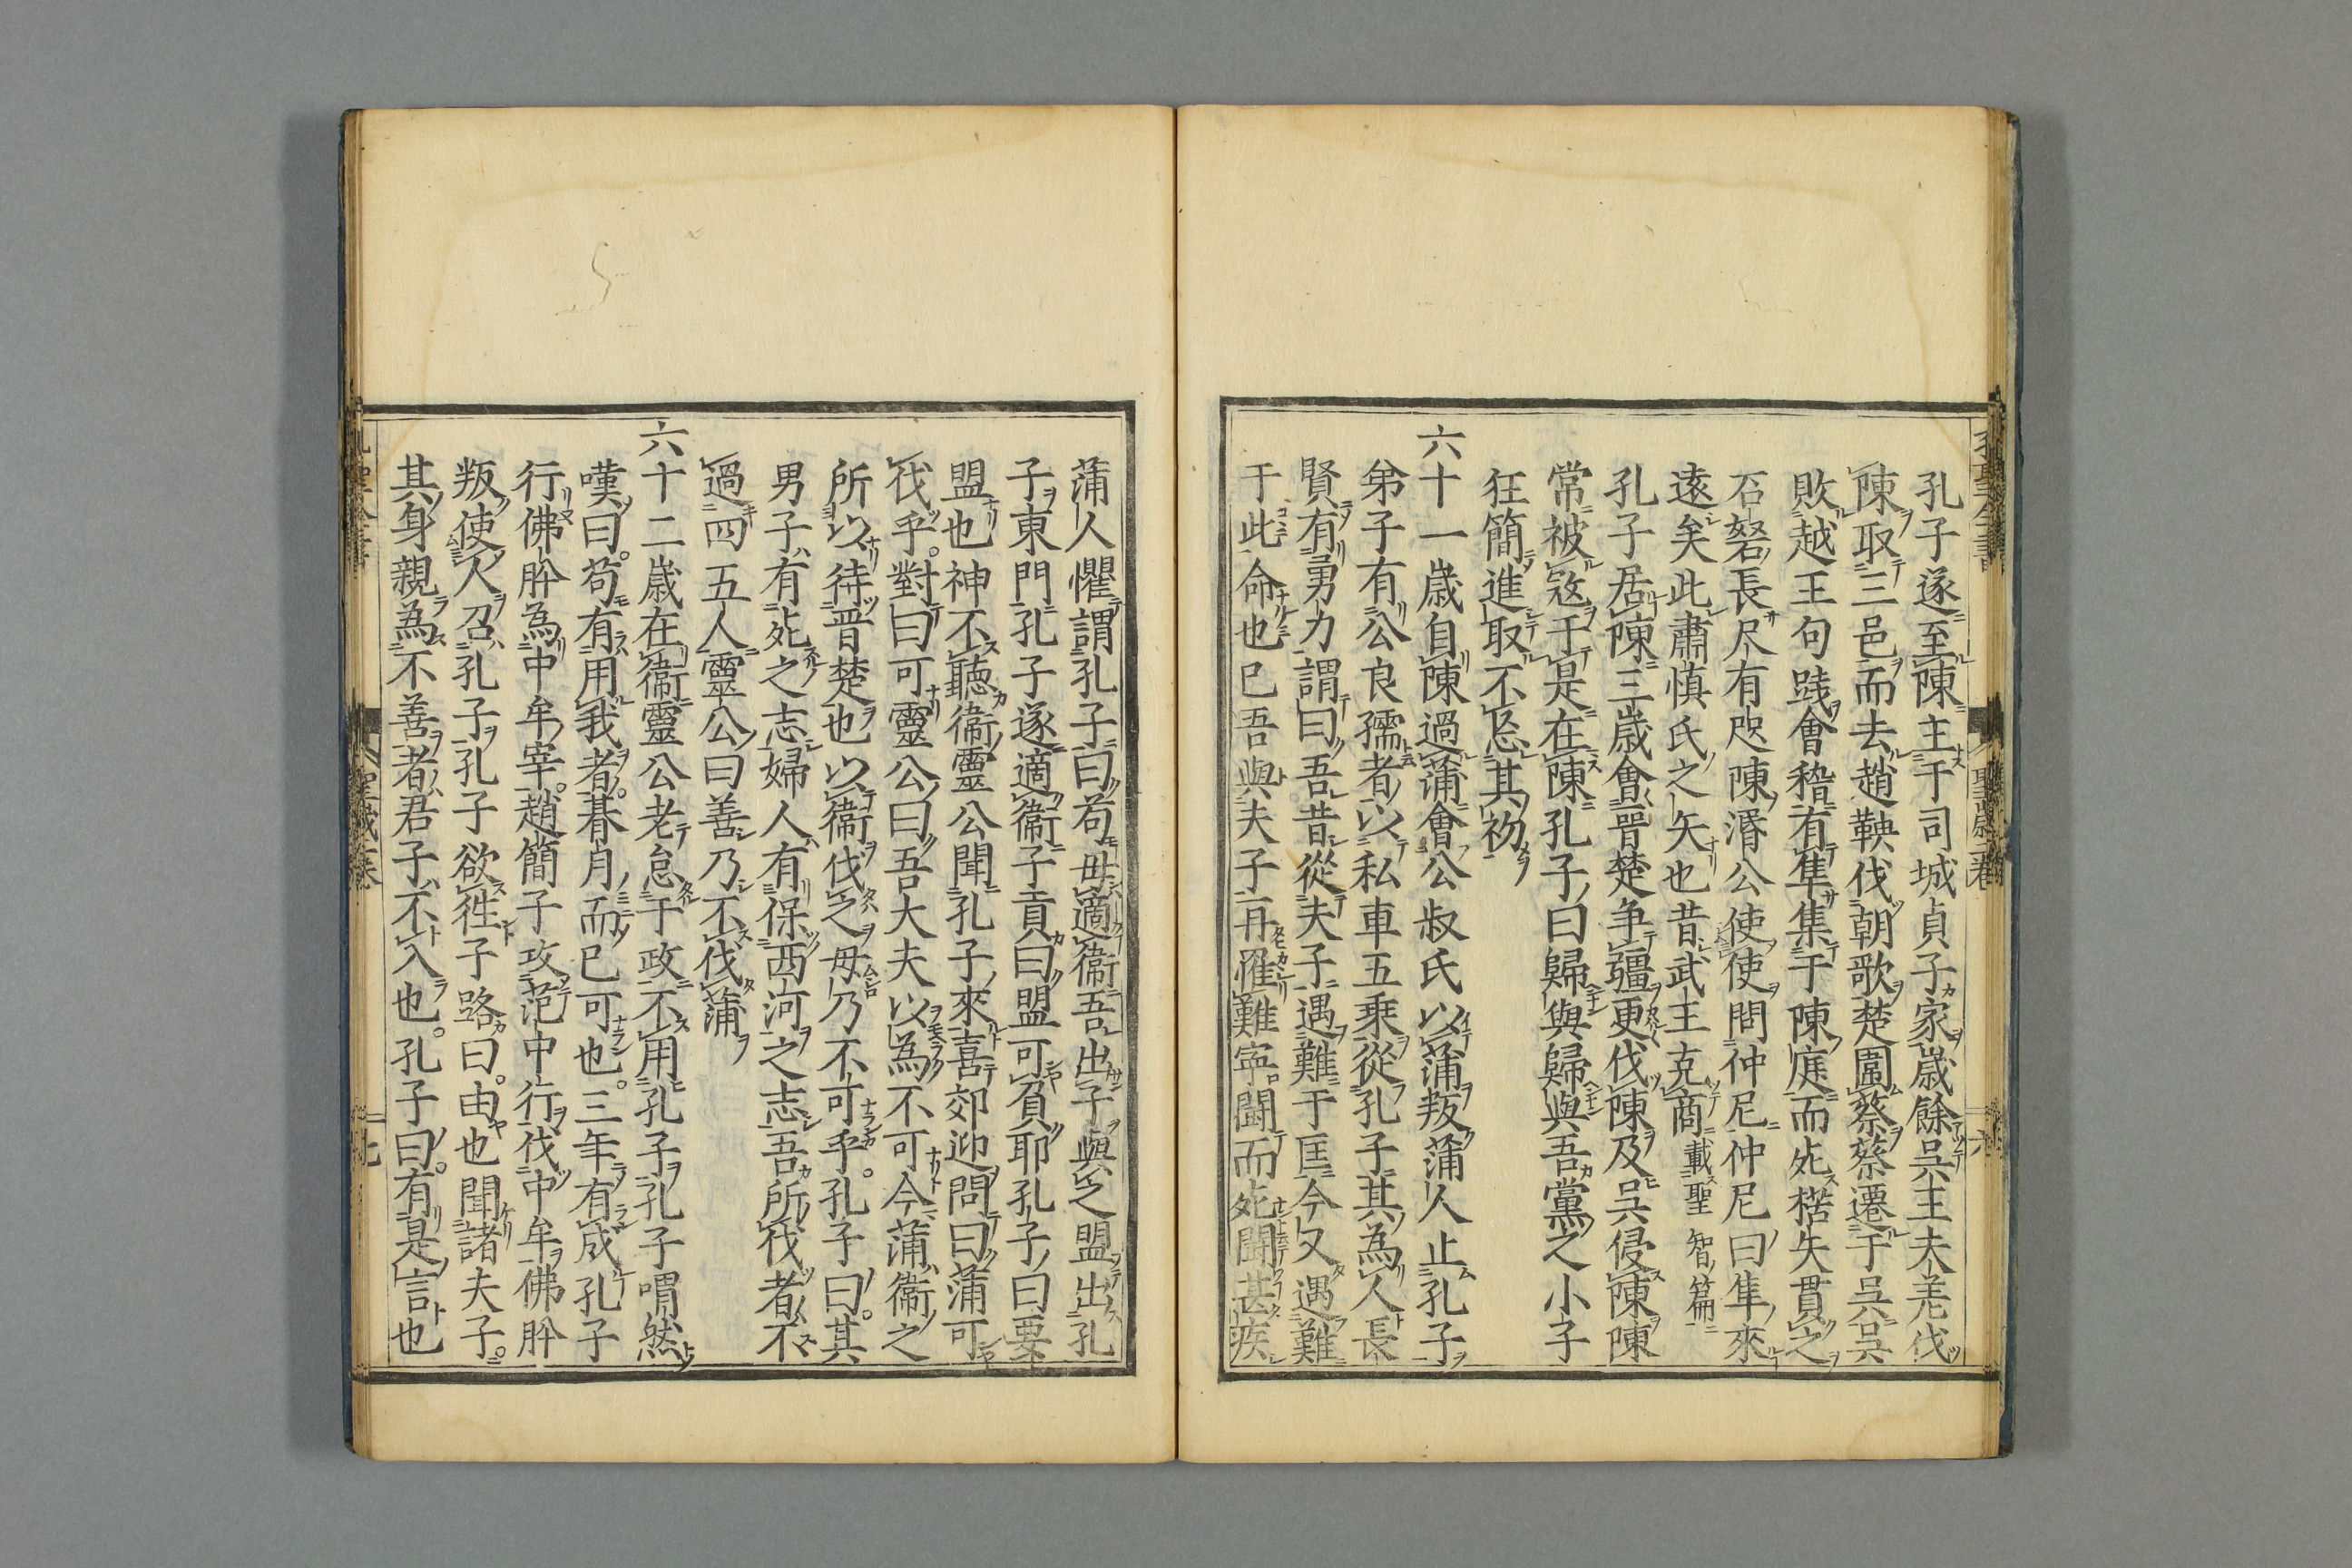 孔子遂至陳主于司城貞子家歲餘吳王夫差伐
陳取三邑而去趙鞅伐朝歌楚圍蔡蔡遷于吳吳
敗越王句踐會稽有隼集于陳庭而死楛矢貫之
石砮長尺有咫陳湣公使使問仲尼仲尼曰隼來
遠矣此肅慎氏之矢也昔武王克商載聖智篇
孔子居陳三歲會晉楚争彊更伐陳及吳侵陳陳
常被寇于是在陳孔子曰歸與歸與吾黨之小子
狂簡進取不忘其初
六十一歲自陳過蒲會公叔氏以蒲叛蒲人止孔子
弟子有公良孺者以私車五乗從孔子其為人長
賢有勇力謂曰吾昔從夫子遇難于匡今又遇難
于此命也已吾與夫子再罹難寜鬪而死鬪甚疾
蒲人懼謂孔子曰苟毋適衞吾出子與之盟出孔
子東門孔子遂適衞子貢曰盟可負耶孔子曰要
盟也神不聽衞靈公聞孔子來喜郊迎問曰蒲可
伐乎對曰可靈公曰吾大夫以為不可今蒲衞之
所以待晉楚也以衞伐之毋乃不可乎孔子曰其
男子有死之志婦人有保西河之志吾所伐者不
過四五人靈公曰善乃不伐蒲
六十二歲在衞靈公老怠于政不用孔子孔子喟然
嘆曰苟有用我者朞月而已可也三年有成孔子
行佛肸為中牟宰趙簡子攻范中行伐中牟佛肸
叛使人召孔子孔子欲徃子路曰由也聞諸夫子
其身親為不善者君子不入也孔子曰有是言也